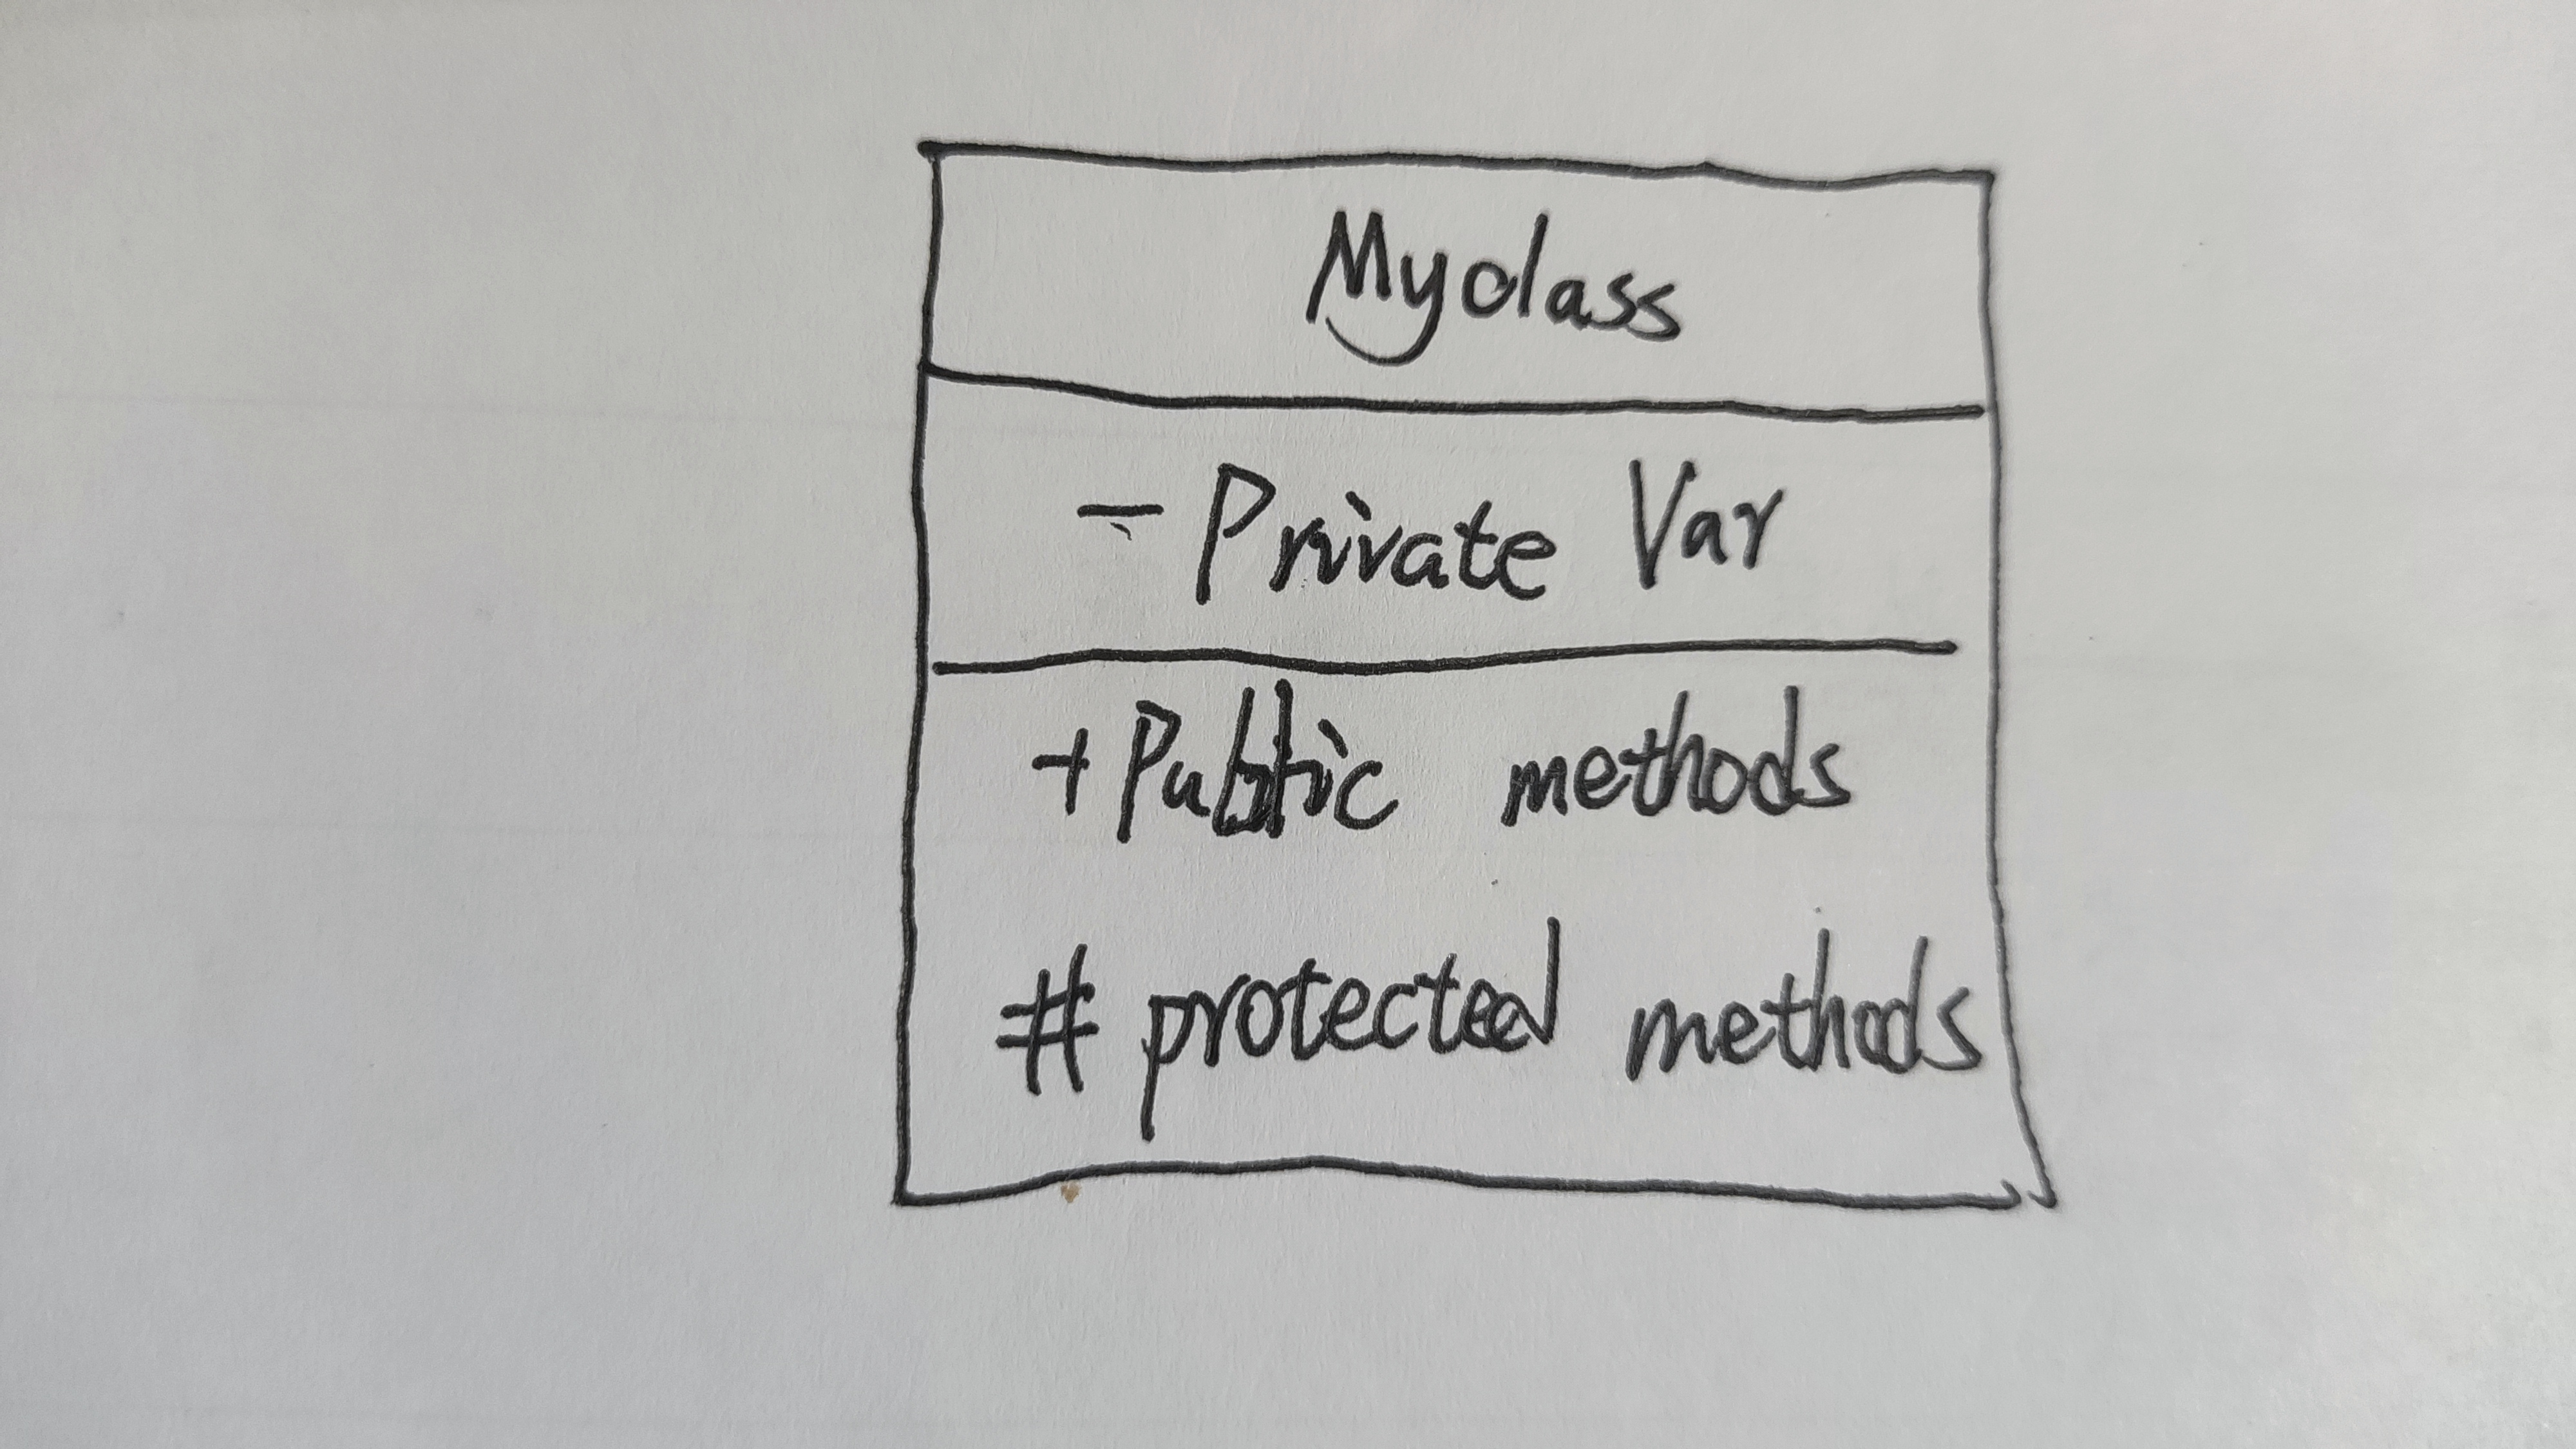 Myclass
- Private Var
+ Public methods
# protected methods